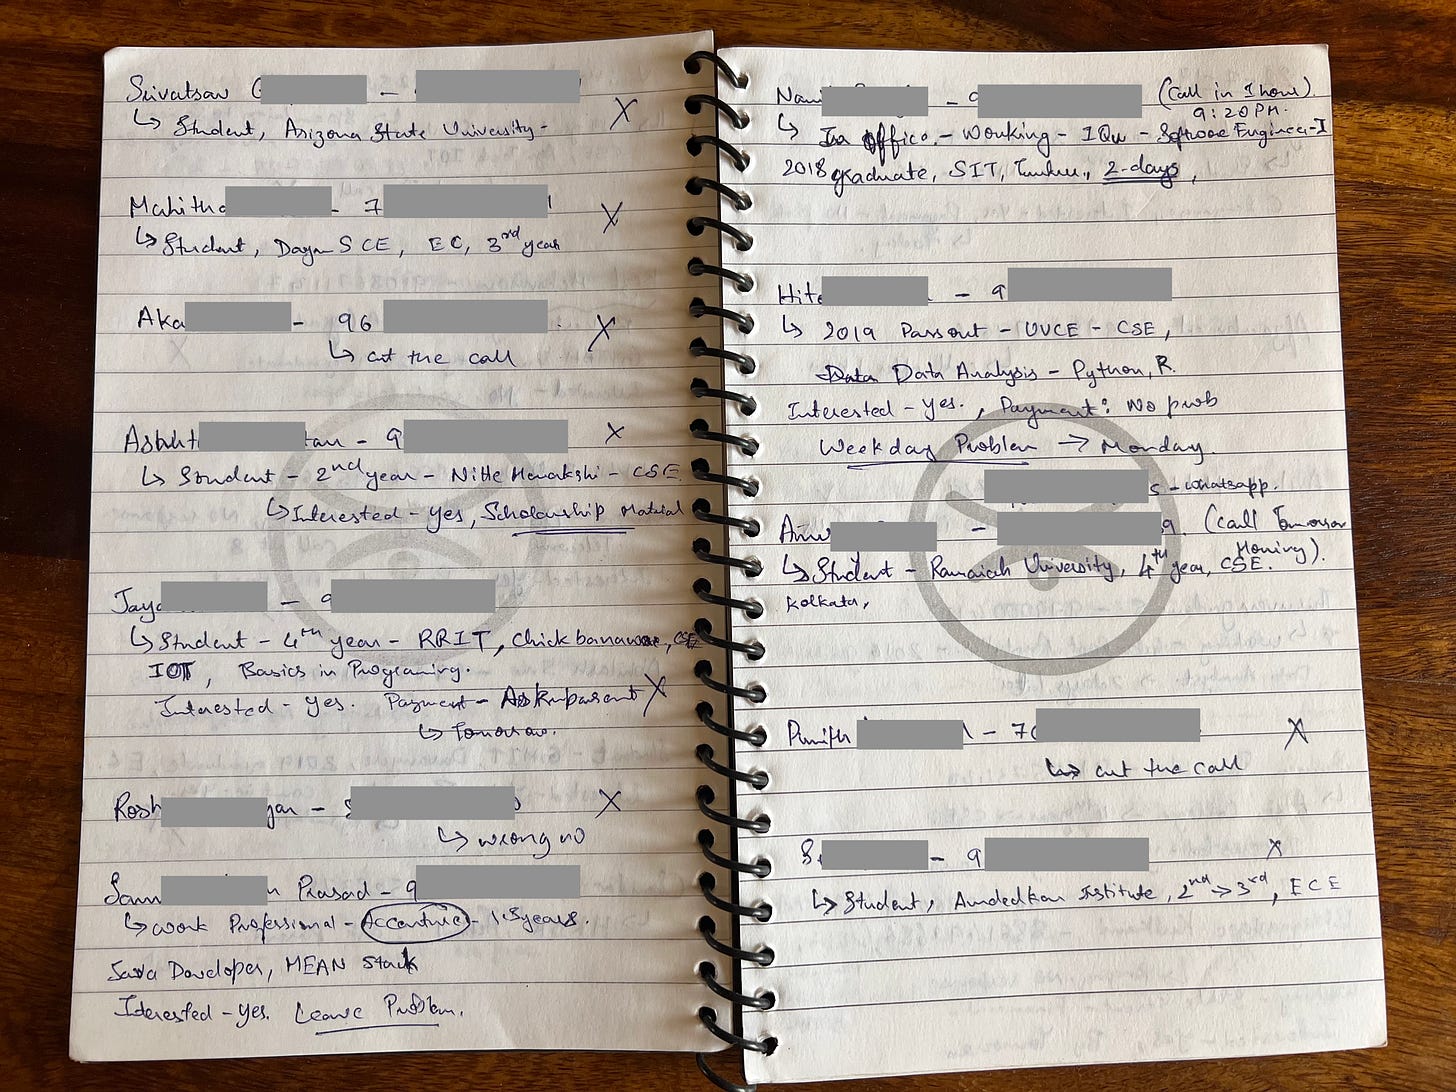 Srivatsav G —
↳ Student, Arizona State University - X
Mahitha - 7 X
↳ Student, Dayan SCE, EC, 3rd year
Aka - 96 X
↳ cut the call
- 9 X
↳ Student - 2nd year - Nitte Menakshi - CSE
↳ Interested - yes, Scholarship Material
Jaya — 9
↳ Student - 4th year - RRIT, Chickbanawara, CSE
IOT, Basics in Programing.
Interested - yes. Payment - Ask parent X
↳ Tomorrow.
Rosh jan - X
↳ wrong no
Prasad - 9
↳ work Professional - Accenture - 1.5 years.
Java Developer, MEAN Stack
Interested - yes. Leave Problem.
Nam - 9 (Call in 1 hour).
9:20 PM.
↳ In office - Working - IQw - Software Engineer-I
2018 graduate, SIT, Tumkur, 2-days,
Hite - 9
↳ 2019 Passout - UVCE - CSE,
Data Data Analysis - Python, R.
Interested - yes., Payment: No prob
Weekday Problem → Monday.
5 - whatsapp.
- 9 (call Tomorrow
Morning).
↳ Student - Ramaiah University, 4th year, CSE.
Kolkata,
Punith - 70 X
↳ cut the call
S - 9 X
↳ Student, Institute, 2nd → 3rd, ECE